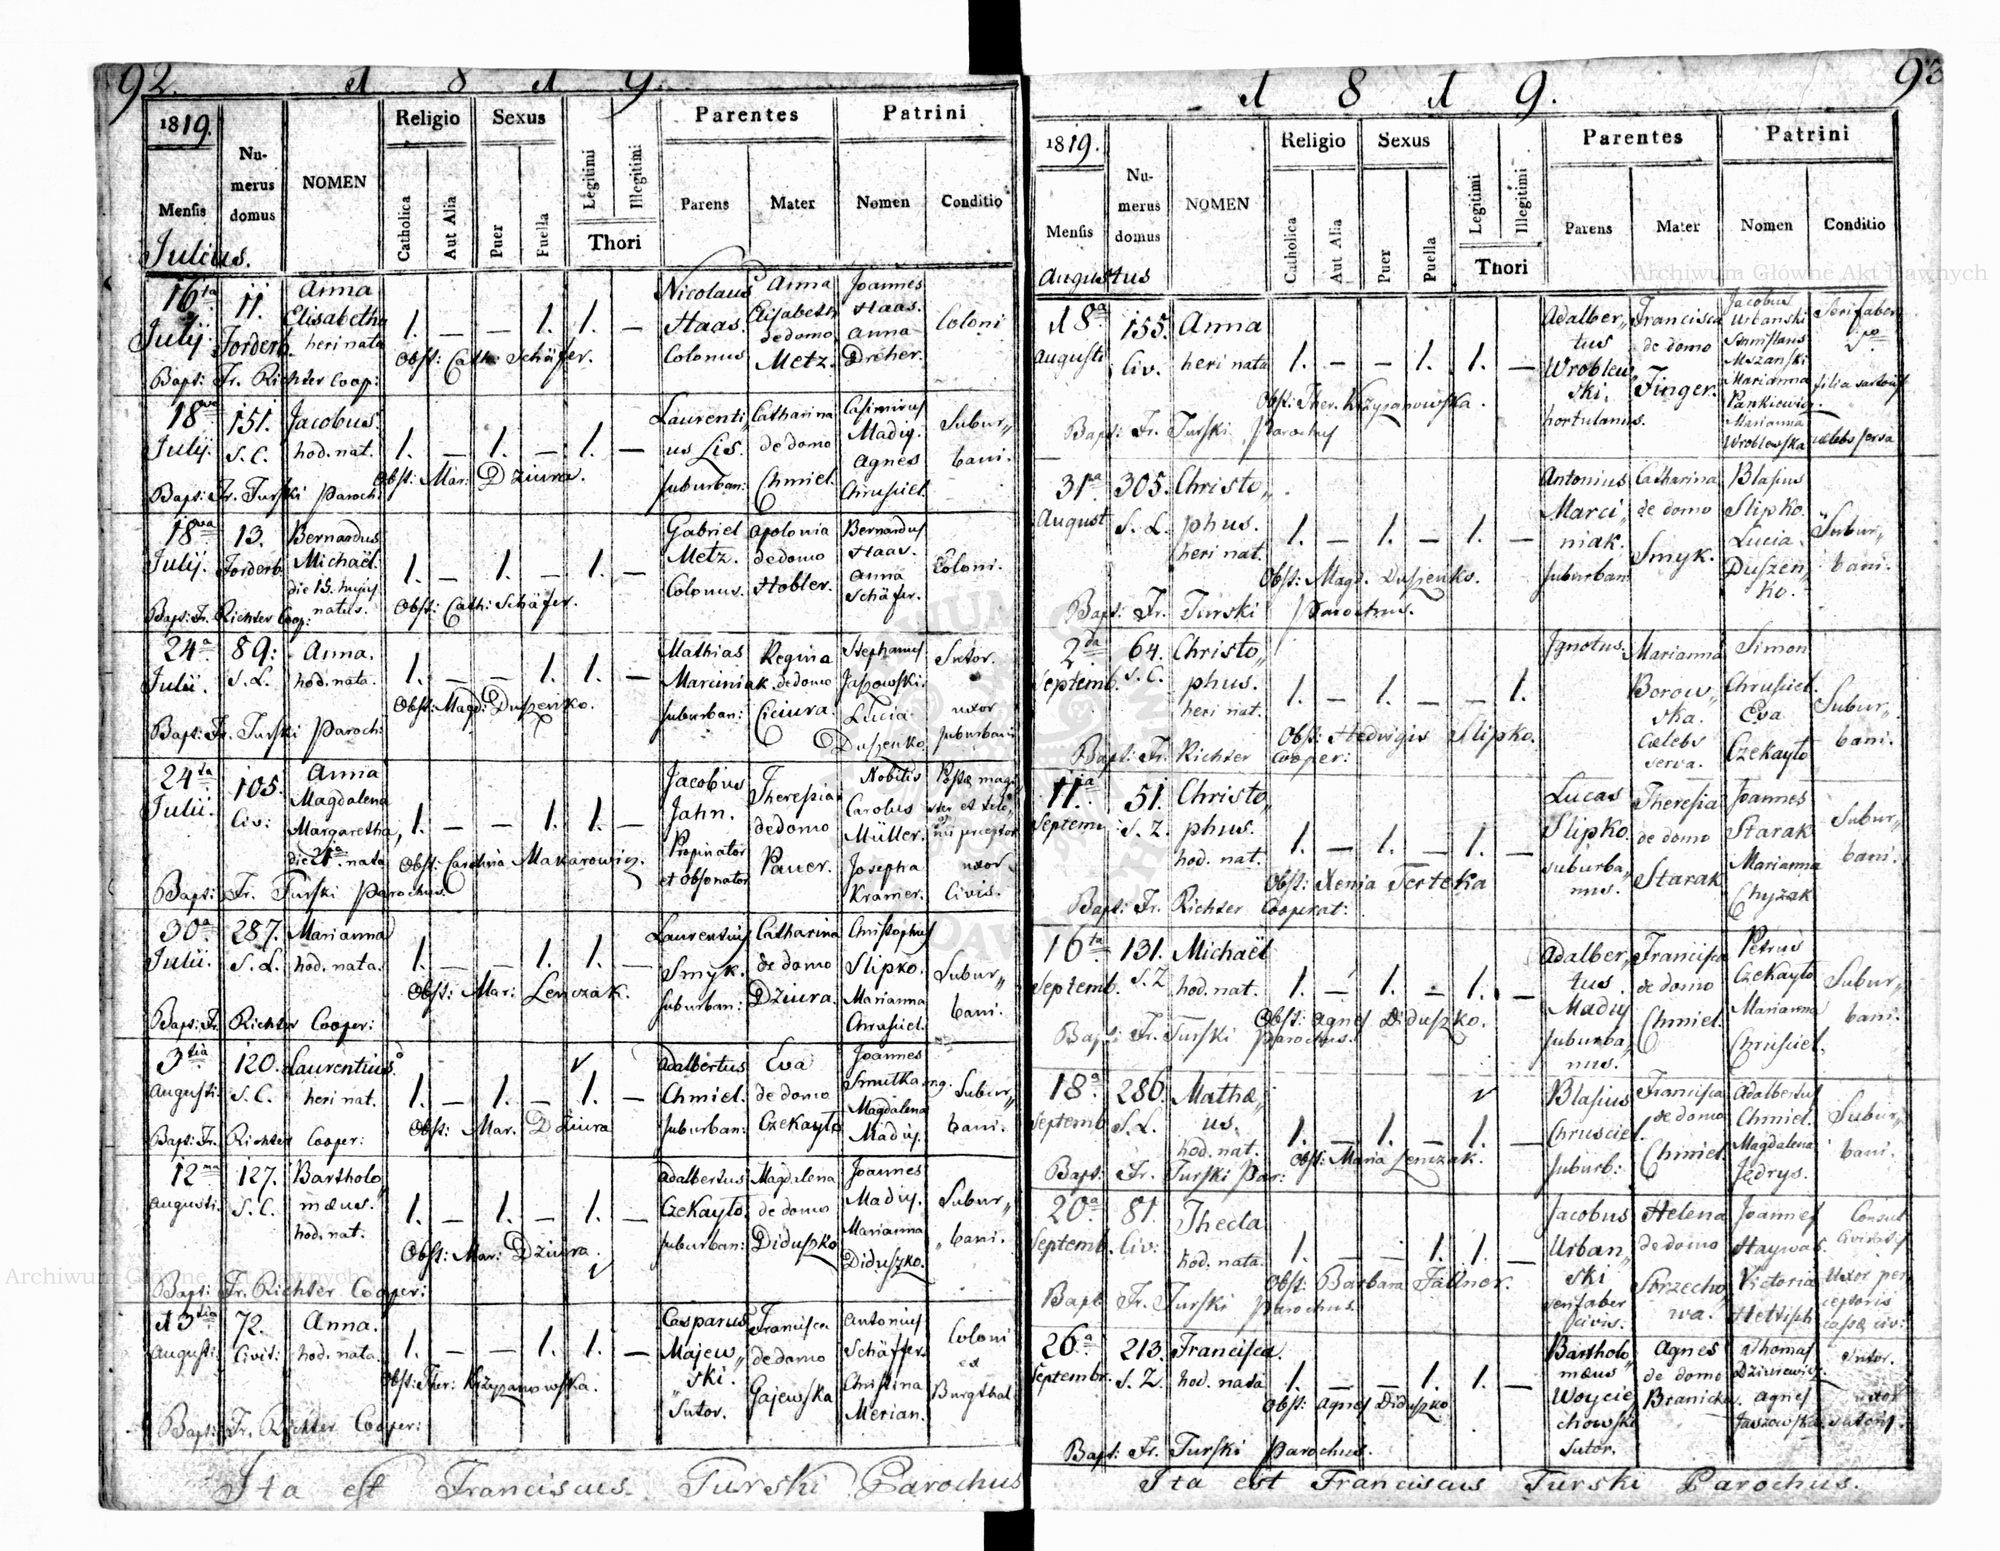 92.
1 8 1 9.
1819.
Mensis
Julius.
Nu-
merus
domus
NOMEN
Religio
Catholica
Aut Alia
Sexus
Puer
Fuella
Legitimi
Illegitimi
Thori
Parentes
Parens
Mater
Patrini
Nomen
Conditio
16ta
July.
11.
Forderb.
Anna
Elisabetha
heri nata
1. — — 1. 1. —
Obst: Cath: Schäfer.
Nicolaus
Haas.
Colonus.
Anna
Elisabeth
de domo
Metz.
Joannes
Haas.
Anna
Dreher.
Coloni
Bapt: Fr. Richter Coop:
18va
July.
151.
S. C.
Jacobus.
hod. nat.
1. — 1. — 1. —
Obst: Mar: Dziura.
Laurenti„
us Lis.
suburban:
Catharina
de domo
Chmiel.
Casimirus
Madiy.
Agnes
Chrusciel.
Subur„
bani.
Bapt: Fr. Turski Paroch:
18va
July.
13.
Forderb.
Bernardus
Michaël.
die 15. hujus
natus.
1. — 1. — 1. —
Obst: Cath: Schäfer.
Gabriel
Metz.
Colonus.
Apolonia
de domo
Hobler.
Bernardus
Haas.
Anna
Schäfer.
Coloni.
Bapt: Fr. Richter Coop:
24a
Julii.
89.
S. L.
Anna.
hod. nata.
1. — — 1. 1. —
Obst: Magd: Duszenko.
Mathias
Marciniak.
suburban:
Regina
de domo
Ciciura.
Stephanus
Jaszowski.
Lucia
Duszenko.
Sutor.
uxor
suburbani
Bapt: Fr. Turski Paroch:
24ta
Julii.
105.
Civ:
Anna
Magdalena
Margaretha,
die 21a nata
1. — — 1. 1. —
Obst: Carolina Makarowicz.
Jacobus
Jahn.
Propinator
et Obsonator
Theresia
de domo
Pauer.
Nobilis
Carolus
Müller.
Josepha
Kramer.
uxor
Civis.
Bapt: Fr. Turski Parochus.
30a
Julii.
287.
S. L.
Marianna
hod. nata.
1. — — 1. 1. —
Obst: Mar: Lenczak.
Laurentius
Smyk.
suburban:
Catharina
de domo
Dziura.
Christophus
Slipko.
Marianna
Chrusciel.
Subur„
bani.
Bapt: Fr. Richter Cooper:
3tia
Augusti.
120.
S. C.
Laurentius
heri nat.
1. — 1. — 1. —
Obst: Mar. Dziura
Adalbertus
Chmiel.
suburban:
Eva
de domo
Czekayło
Joannes
Smutka
Magdalena
Madiy.
Subur„
bani.
Bapt: Fr. Richter Cooper:
12ma
Augusti.
127.
S. C.
Bartholo„
mæus.
hod. nat.
1. — 1. — 1. —
Obst: Mar: Dziura.
Adalbertus
Czekayło.
suburban:
Magdalena
de domo
Diduszko
Joannes
Madiy.
Marianna
Diduszko.
Subur„
bani.
Bapt: Fr. Richter Cooper:
13tia
Augusti.
72.
Civit:
Anna.
hod. nata.
1. — — 1. 1. —
Obst: Ther: Krzyzanowska.
Casparus
Majew„
ski.
Sutor.
Francisca
de domo
Gajewska
Antonius
Schäffer.
Christina
Merian.
Coloni
ex
Burgthal
Bapt: Fr. Richter Cooper:
Ita est Franciscus Turski Parochus
93
1 8 1 9.
1819.
Mensis
Augustus
Nu-
merus
domus
NOMEN
Religio
Catholica
Aut Alia
Sexus
Puer
Puella
Legitimi
Illegitimi
Thori
Parentes
Parens
Mater
Patrini
Nomen
Conditio
18a
Augusti
155.
Civ.
Anna
heri nata
1. — — 1. 1. —
Obst: Ther. Krzyzanowska.
Adalber„
tus
Wroblew„
ski.
hortulanus.
Francisca
de domo
Finger.
Jacobus
Urbanski
Stanislaus
Mszanski
Marianna
Pankiewicz.
Marianna
Wroblewska
Serifaber
filia sartoris
cælebs serva
Bapt: Fr. Turski Parochus
31a
August.
305.
S. L.
Christo„
phus.
heri nat.
1. — 1. — 1. —
Obst: Magd. Duszenko.
Antonius
Marci„
niak.
suburban:
Catharina
de domo
Smyk.
Blasius
Slipko.
Lucia
Duszen„
ko.
Subur„
bani.
Bapt: Fr. Turski Parochus.
2da
Septemb.
64.
S. C.
Christo„
phus.
heri nat.
1. — 1. — — 1.
Obst: Hedvigis Slipko.
Ignotus.
Marianna
Borow„
ska.
Cælebs
serva.
Simon
Chrusciel.
Eva
Czekayło
Subur„
bani.
Bapt: Fr. Richter Cooper:
11a
Septemb.
51.
S. Z.
Christo„
phus.
hod. nat.
1. — 1. — 1. —
Obst: Xenia Terteka
Lucas
Slipko.
suburba„
nus.
Theresia
de domo
Starak
Joannes
Starak
Marianna
Chyzak
Subur„
bani.
Bapt: Fr. Richter Cooperat:
16ta
Septemb.
131.
S. Z
Michaël
hod. nat.
1. — 1. — 1. —
Obst: Agnes Diduszko.
Adalber„
tus.
Madiy
suburba„
nus.
Francisca
de domo
Chmiel.
Petrus
Czekayło
Marianna
Chrusciel.
Subur„
bani.
Bapt: Fr. Turski Parochus.
18a
Septemb.
286.
S. L.
Mathæ„
us.
hod. nat.
1. — 1. — 1. —
Obst: Maria Lenczak.
Blasius
Chrusciel.
suburb:
Francisca
de domo
Chmiel
Adalbertus
Chmiel.
Magdalena
Jędrys.
Subur„
bani.
Bapt: Fr. Turski Par:
20a
Septemb.
81.
Civ:
Thecla
hod. nata.
1. — — 1. 1. —
Obst: Barbara Fallnor.
Jacobus
Urban„
ski
serifaber
civis.
Helena
de domo
Strzecho„
wa.
Joannes
Haywas.
Victoria
Hettisch
Consul
Civitatis
Uxor per„
ceptoris
cassæ civ:
Bapt. Fr. Turski Parochus.
26a
Septembr.
213.
S. Z.
Francisca.
hod. nata
1. — — 1. 1. —
Obst: Agnes Diduszko
Bartholo„
mæus
Woycie„
chowski
Sutor.
Agnes
de domo
Branicka.
Thomas
Dziurewicz.
Agnes
Jaszowska.
Sutor.
uxor
sutoris.
Bapt: Fr. Turski Parochus.
Ita est Franciscus Turski Parochus.
Archiwum Główne Akt Dawnych
Archiwum Główne Akt Dawnych